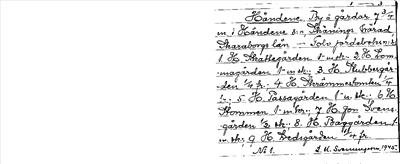 Håndene. By å gårdar 7 3/4
m. i Håndene s:n, Skånings härad
Skaraborgs län — Tolv jordebokens:
1 H. Skattegården 1 mtr. 2. H. Lom-
magården 1 mtr. 3. H. Klubbergår-
den 1/4 fr. 4 H. Skrämmestomten 1/4
fr. 5. H. Passagården 1 u. sk. 6 H.
Kommen 1 mtr. 7 H. Jon Svens-
gården 1/2 sk. 8. H. Baggården 1
u. sk. 9 H. Svedsgården 1/4 fr.
N:o 1. S. A. Svenningsson, 1945.